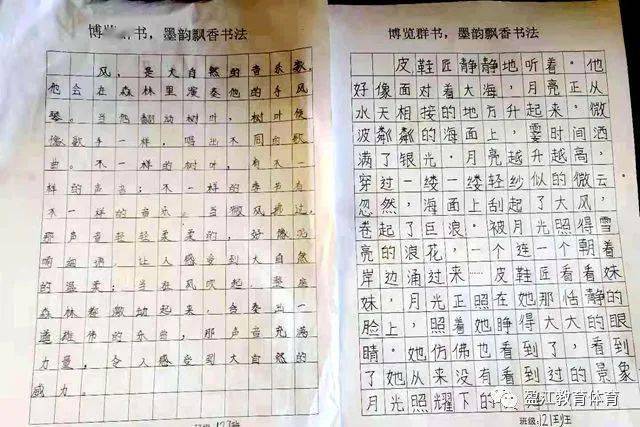 博览 书，墨韵飘香书法
风，是大自然的音乐家，
他会在森林里演奏他的手风
琴。当他翻动树叶，树叶便
像歌手一样，唱出不同的歌
曲。不一样的树叶，有不一
样的声音；不一样的季节有
不一样的音乐。当微风拂过，
那声音轻轻柔柔的，好像呢
喃细语，让人感受到大自然
的温柔；当狂风吹起，整座
森林都激动起来，合奏出一
首雄伟的乐曲，那声音充满
力量，令人感受到大自然的
威力。
博览群书，墨韵飘香书法
皮鞋匠静静地听着。他
好像面对着大海，月亮正从
水天相接的地方升起来。微
波粼粼的海面上，霎时间洒
满了银光。月亮越升越高，
穿过一缕一缕轻纱似的微云
忽然，海面上刮起了大风，
卷起了巨浪。被月光照得雪
亮的浪花，一个连一个朝着
岸边涌过来……皮鞋匠看看妹
妹，月光正照在她那恬静的
脸上，照着她睁得大大的眼
睛。她仿佛也看到了，看到
了她从来没有看到过的景象
月光照耀下的
班级:
盈江教育体育